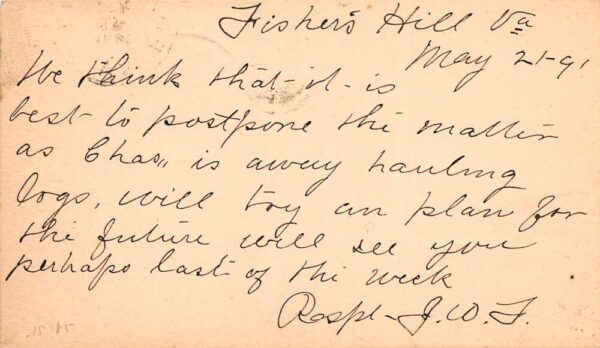 Fisher's Hill Va
May 21-91
We think that it is
best to postpone the matter
as Chas,, is away hauling
logs, will try an plan for
the future will see you
perhaps last of the week
Respt- J.W.F.
15 85